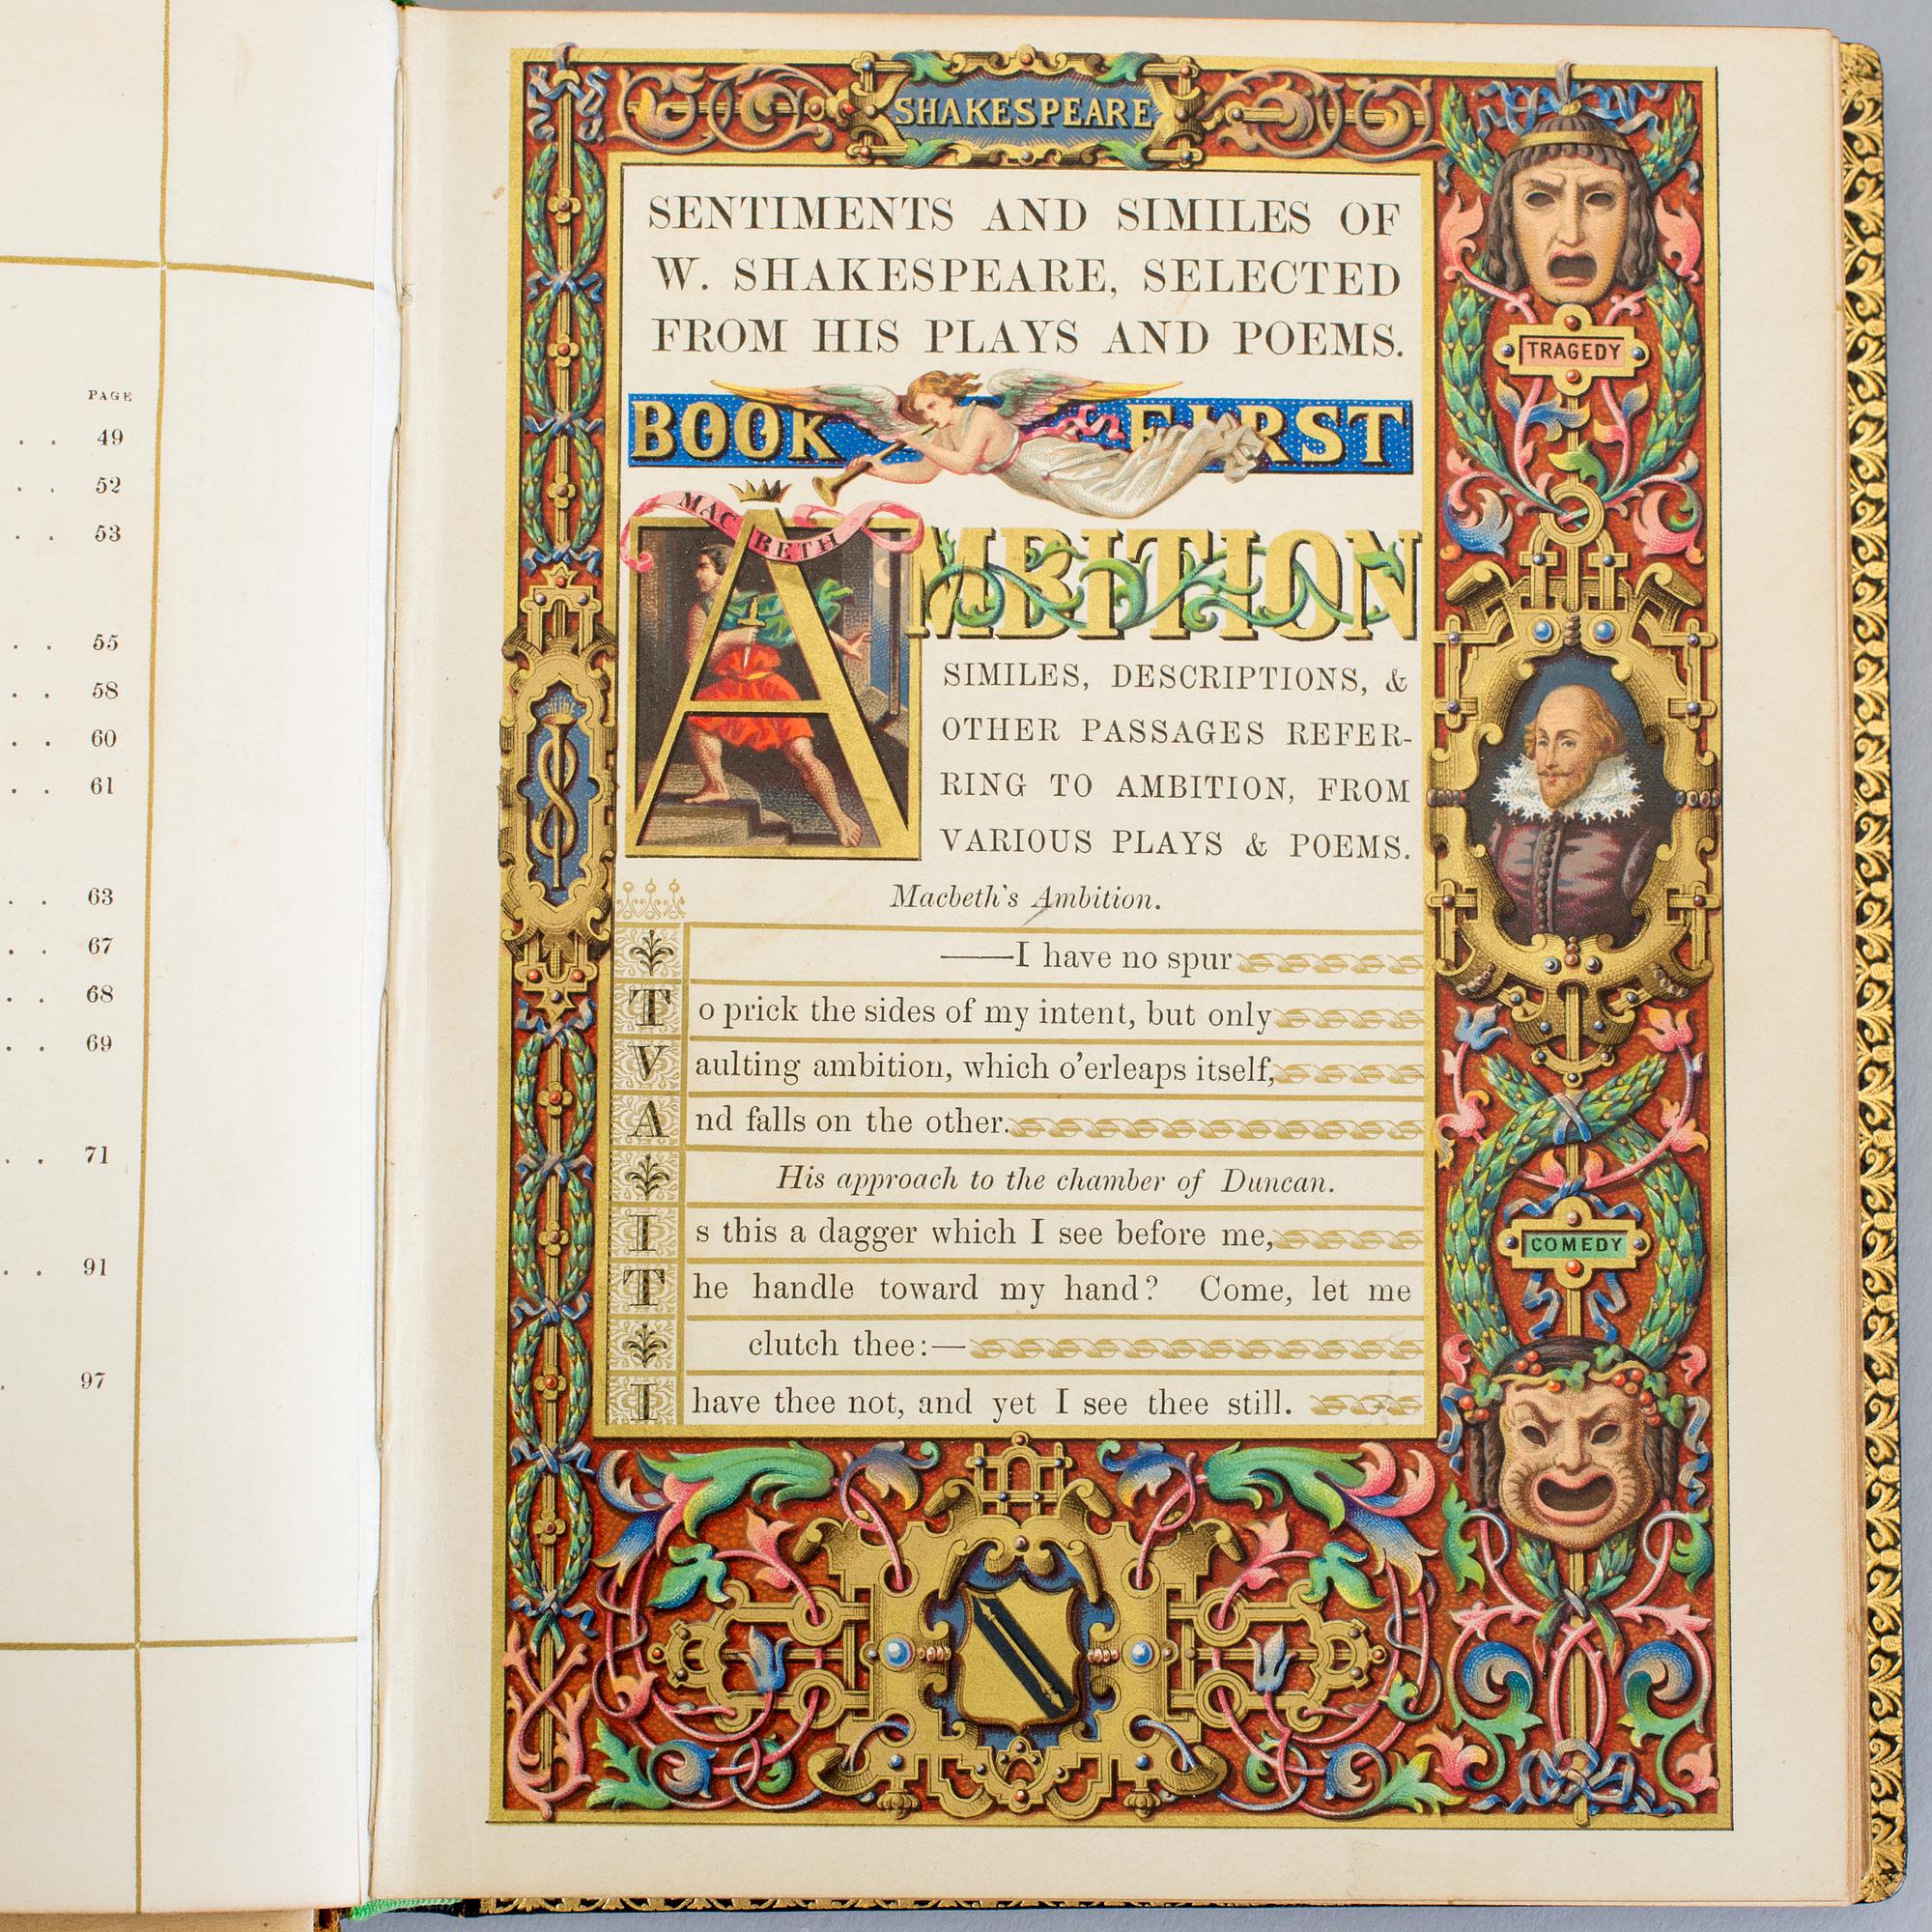 PAGE
. . 49
. . 52
. . 53
. . 55
. . 58
. . 60
. . 61
. . 63
. . 67
. . 68
. . 69
. . 71
. . 91
. 97
SHAKESPEARE
SENTIMENTS AND SIMILES OF
W. SHAKESPEARE, SELECTED
FROM HIS PLAYS AND POEMS.
BOOK FIRST
MACBETH
AMBITION
SIMILES, DESCRIPTIONS, &
OTHER PASSAGES REFER-
RING TO AMBITION, FROM
VARIOUS PLAYS & POEMS.
Macbeth's Ambition.
——I have no spur
To prick the sides of my intent, but only
Vaulting ambition, which o'erleaps itself,
And falls on the other.
His approach to the chamber of Duncan.
Is this a dagger which I see before me,
The handle toward my hand? Come, let me
clutch thee:—
I have thee not, and yet I see thee still.
TRAGEDY
COMEDY